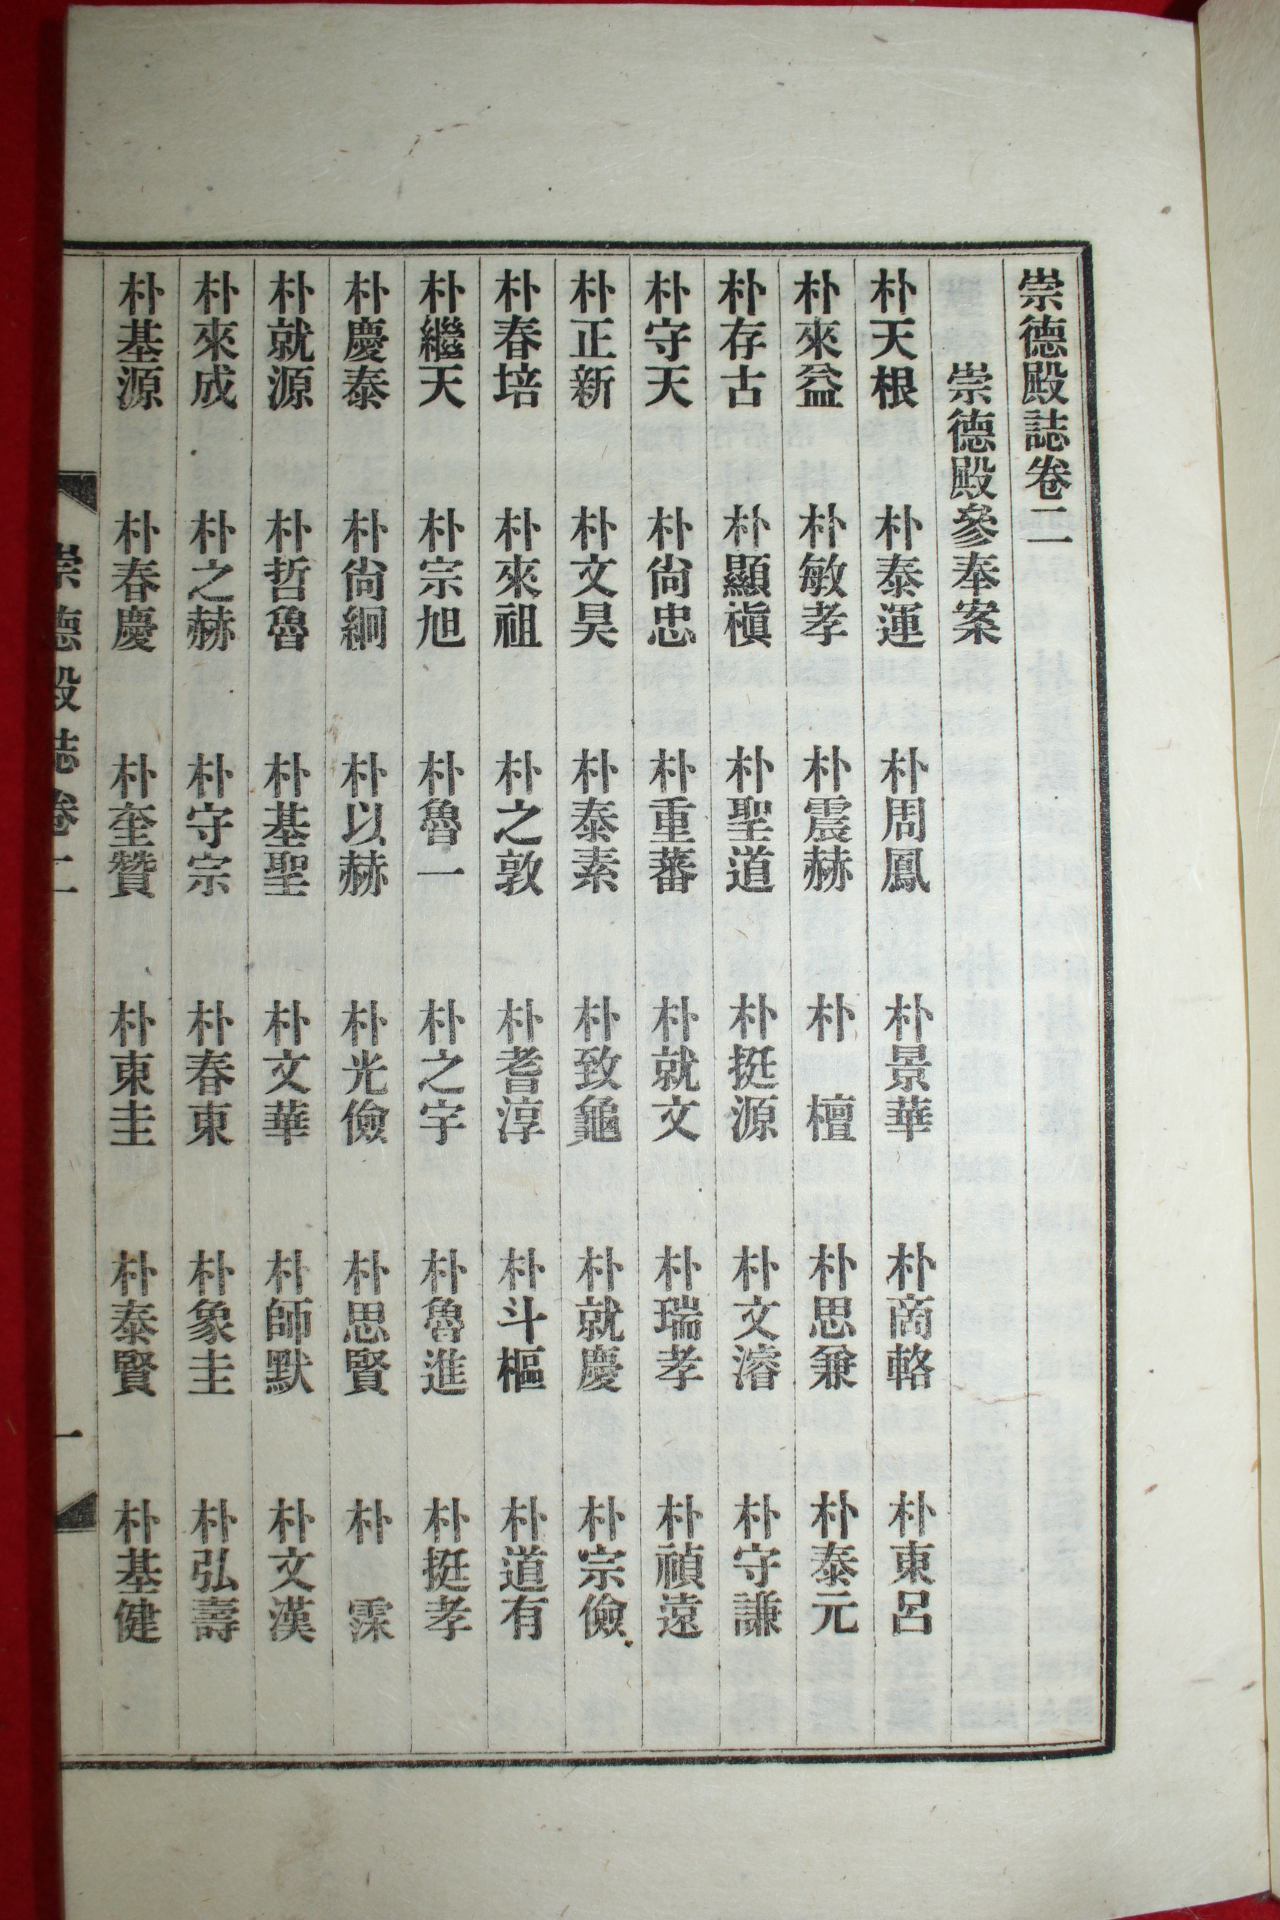 崇德殿誌卷二
崇德殿參奉案
朴天根 朴泰運 朴周鳳 朴景華 朴商輅 朴東呂
朴來益 朴敏孝 朴震赫 朴 檀 朴思兼 朴泰元
朴存古 朴顯禛 朴聖道 朴挺源 朴文濬 朴守謙
朴守天 朴尙忠 朴重蕃 朴就文 朴瑞孝 朴禎遠
朴正新 朴文昊 朴泰素 朴致龜 朴就慶 朴宗儉
朴春培 朴來祖 朴之敦 朴耆淳 朴斗樞 朴道有
朴繼天 朴宗旭 朴魯一 朴之宇 朴魯進 朴挺孝
朴慶泰 朴尙絅 朴以赫 朴光儉 朴思賢 朴 霂
朴就源 朴哲魯 朴基聖 朴文華 朴師默 朴文漢
朴來成 朴之赫 朴守宗 朴春東 朴象圭 朴弘壽
朴基源 朴春慶 朴奎贊 朴東圭 朴泰賢 朴基健
崇德殿誌卷二 一